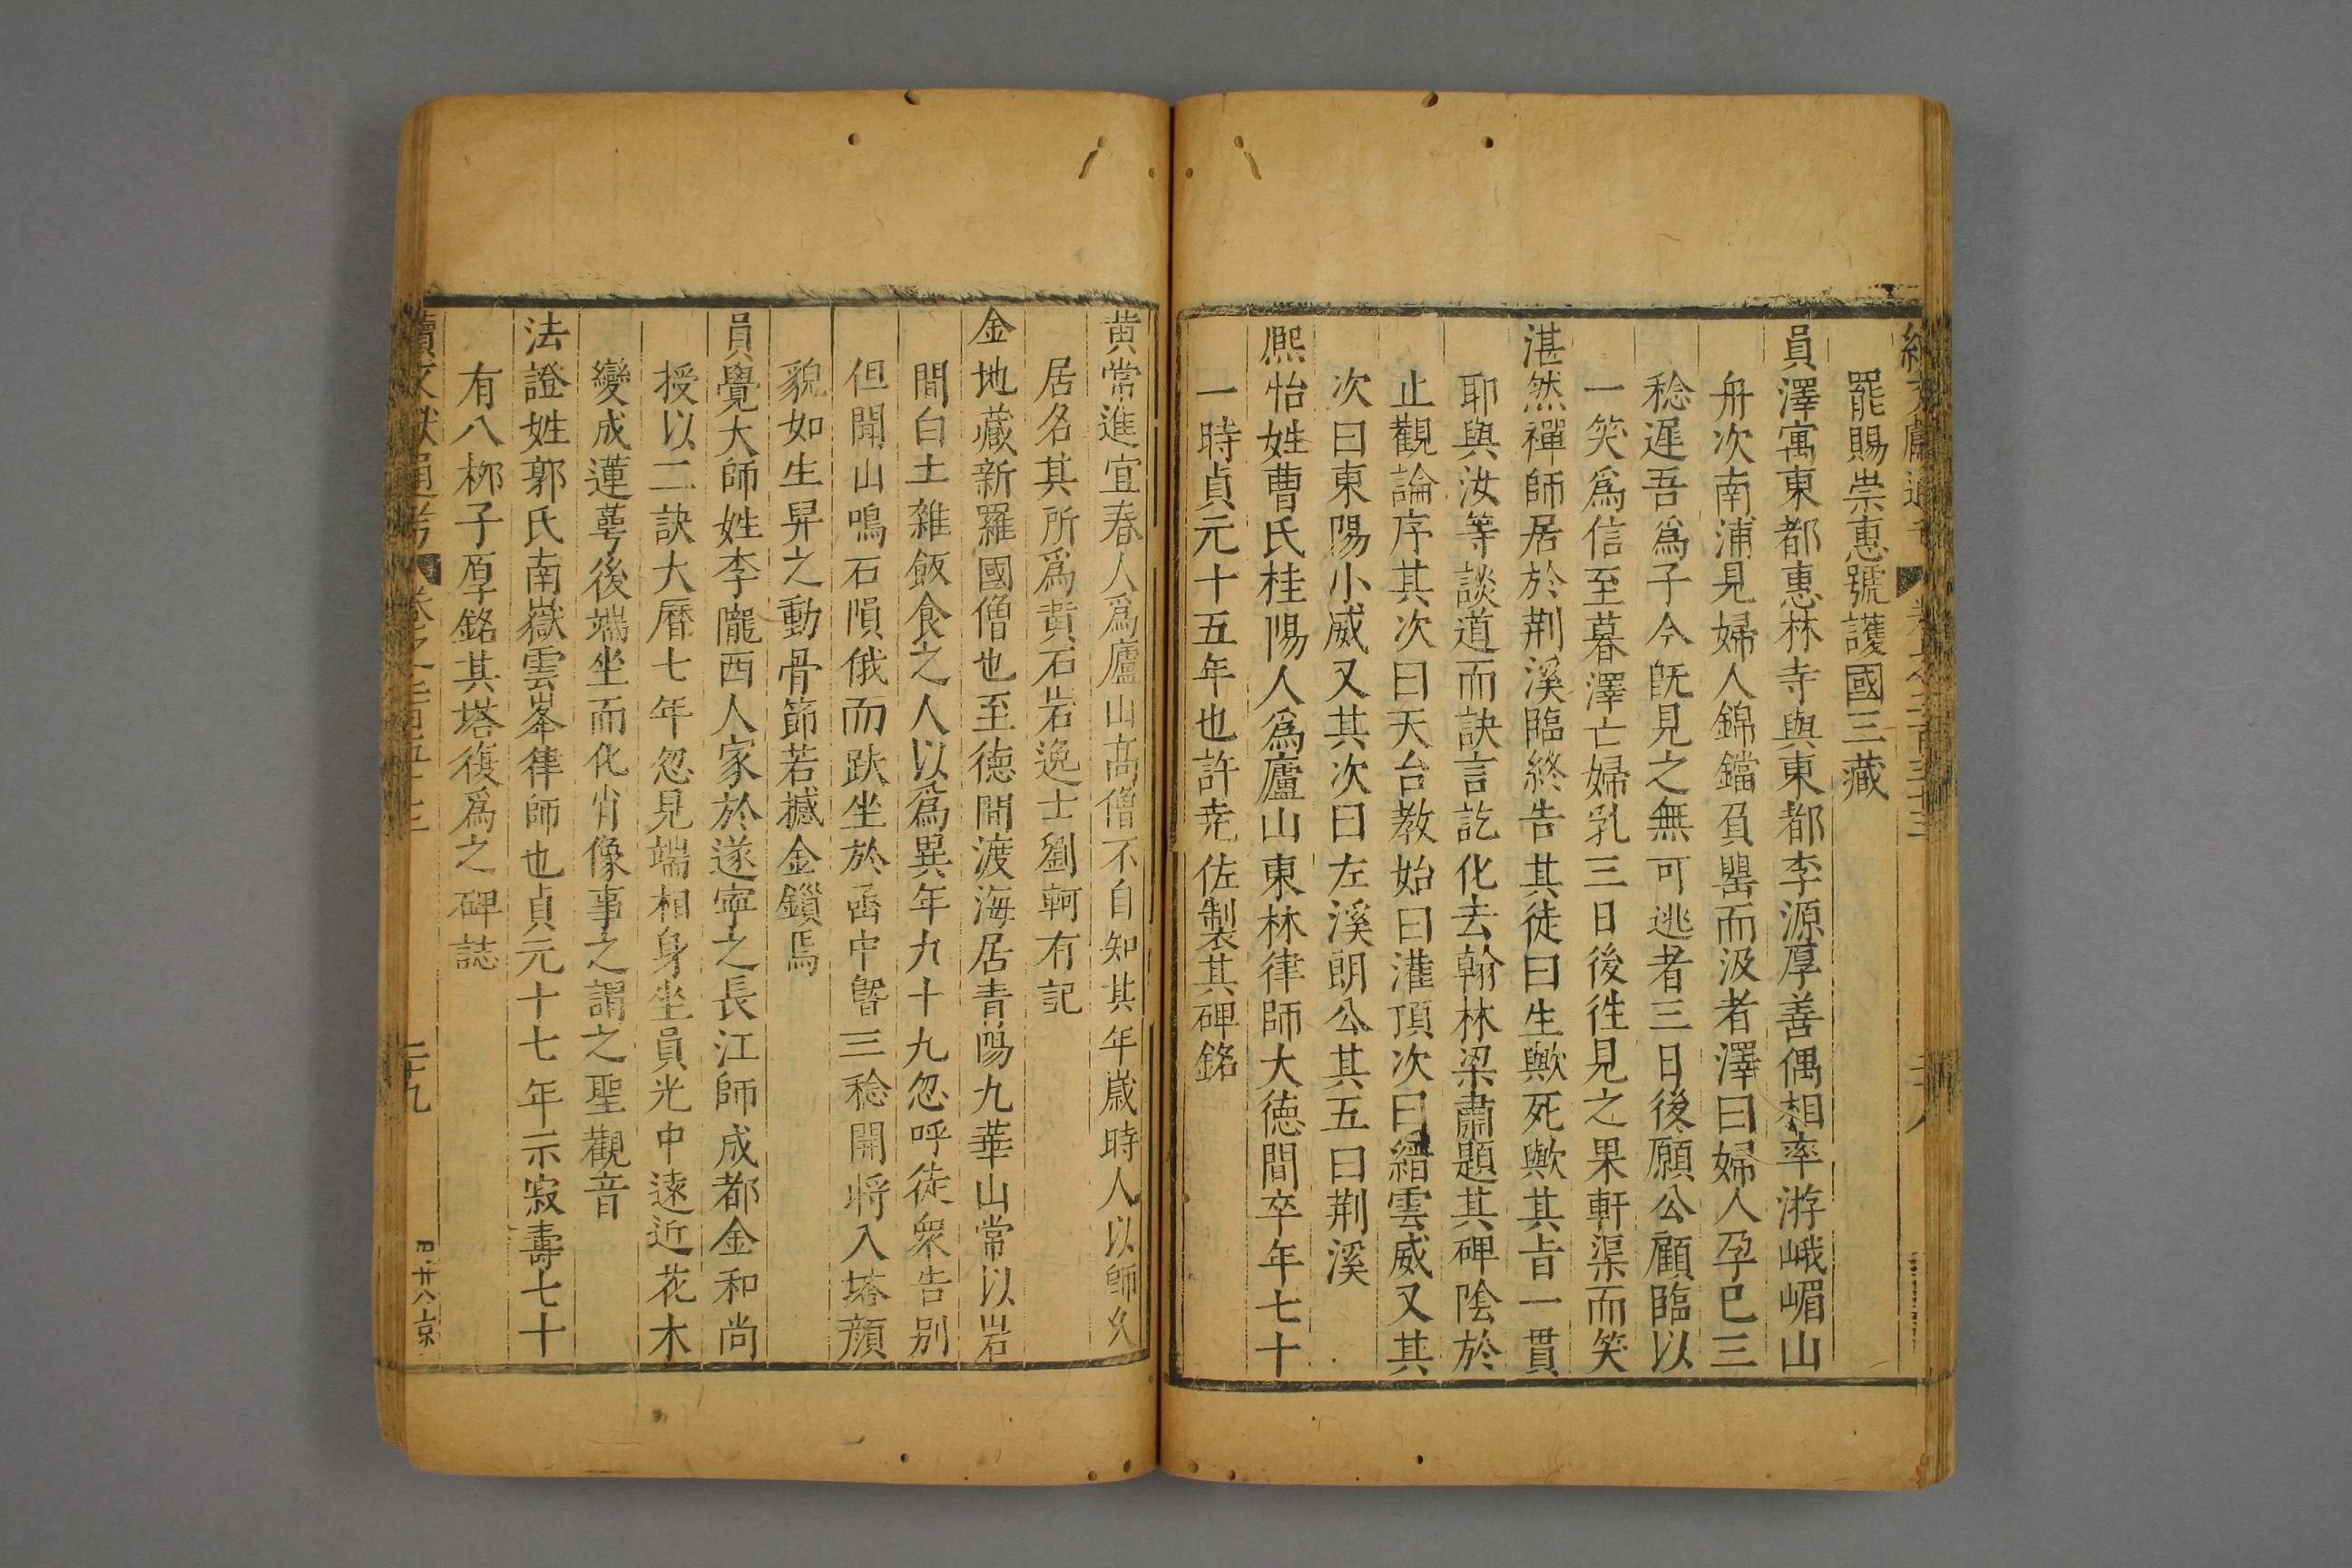 罷賜崇惠號護國三藏
員澤寓東都惠林寺與東都李源厚善偶相率游峨嵋山
舟次南浦見婦人錦鐺負罌而汲者澤曰婦人孕已三
稔遲吾爲子今既見之無可逃者三日後願公顧臨以
一笑爲信至暮澤亡婦乳三日後徃見之果軒渠而笑
湛然禪師居於荆溪臨終告其徒曰生歟死歟其㫖一貫
耶與汝等談道而訣言訖化去翰林梁肅題其碑陰於
止觀論序其次曰天台教始曰灌頂次曰縉雲威又其
次曰東陽小威又其次曰左溪朗公其五曰荆溪
熈怡姓曹氏桂陽人爲廬山東林律師大徳間卒年七十
一時貞元十五年也許尭佐製其碑銘
黄常進宜春人爲廬山高僧不自知其年歲時人以師久
居名其所爲黄石岩逸士劉軻有記
金地藏新羅國僧也至徳間渡海居青陽九華山常以岩
間白土雜飯食之人以爲異年九十九忽呼徒衆告别
但聞山鳴石隕俄而趺坐於函中曁三稔開将入塔顔
貌如生舁之動骨節若撼金鎖焉
員覺大師姓李隴西人家於遂寧之長江師成都金和尚
授以二訣大曆七年忽見端相身坐員光中遠近花木
變成蓮萼後端坐而化肖像事之謂之聖觀音
法證姓郭氏南嶽雲峯律師也貞元十七年示寂壽七十
有八栁子厚銘其塔復爲之碑誌
續文獻通考 卷之二百五十三 二十九